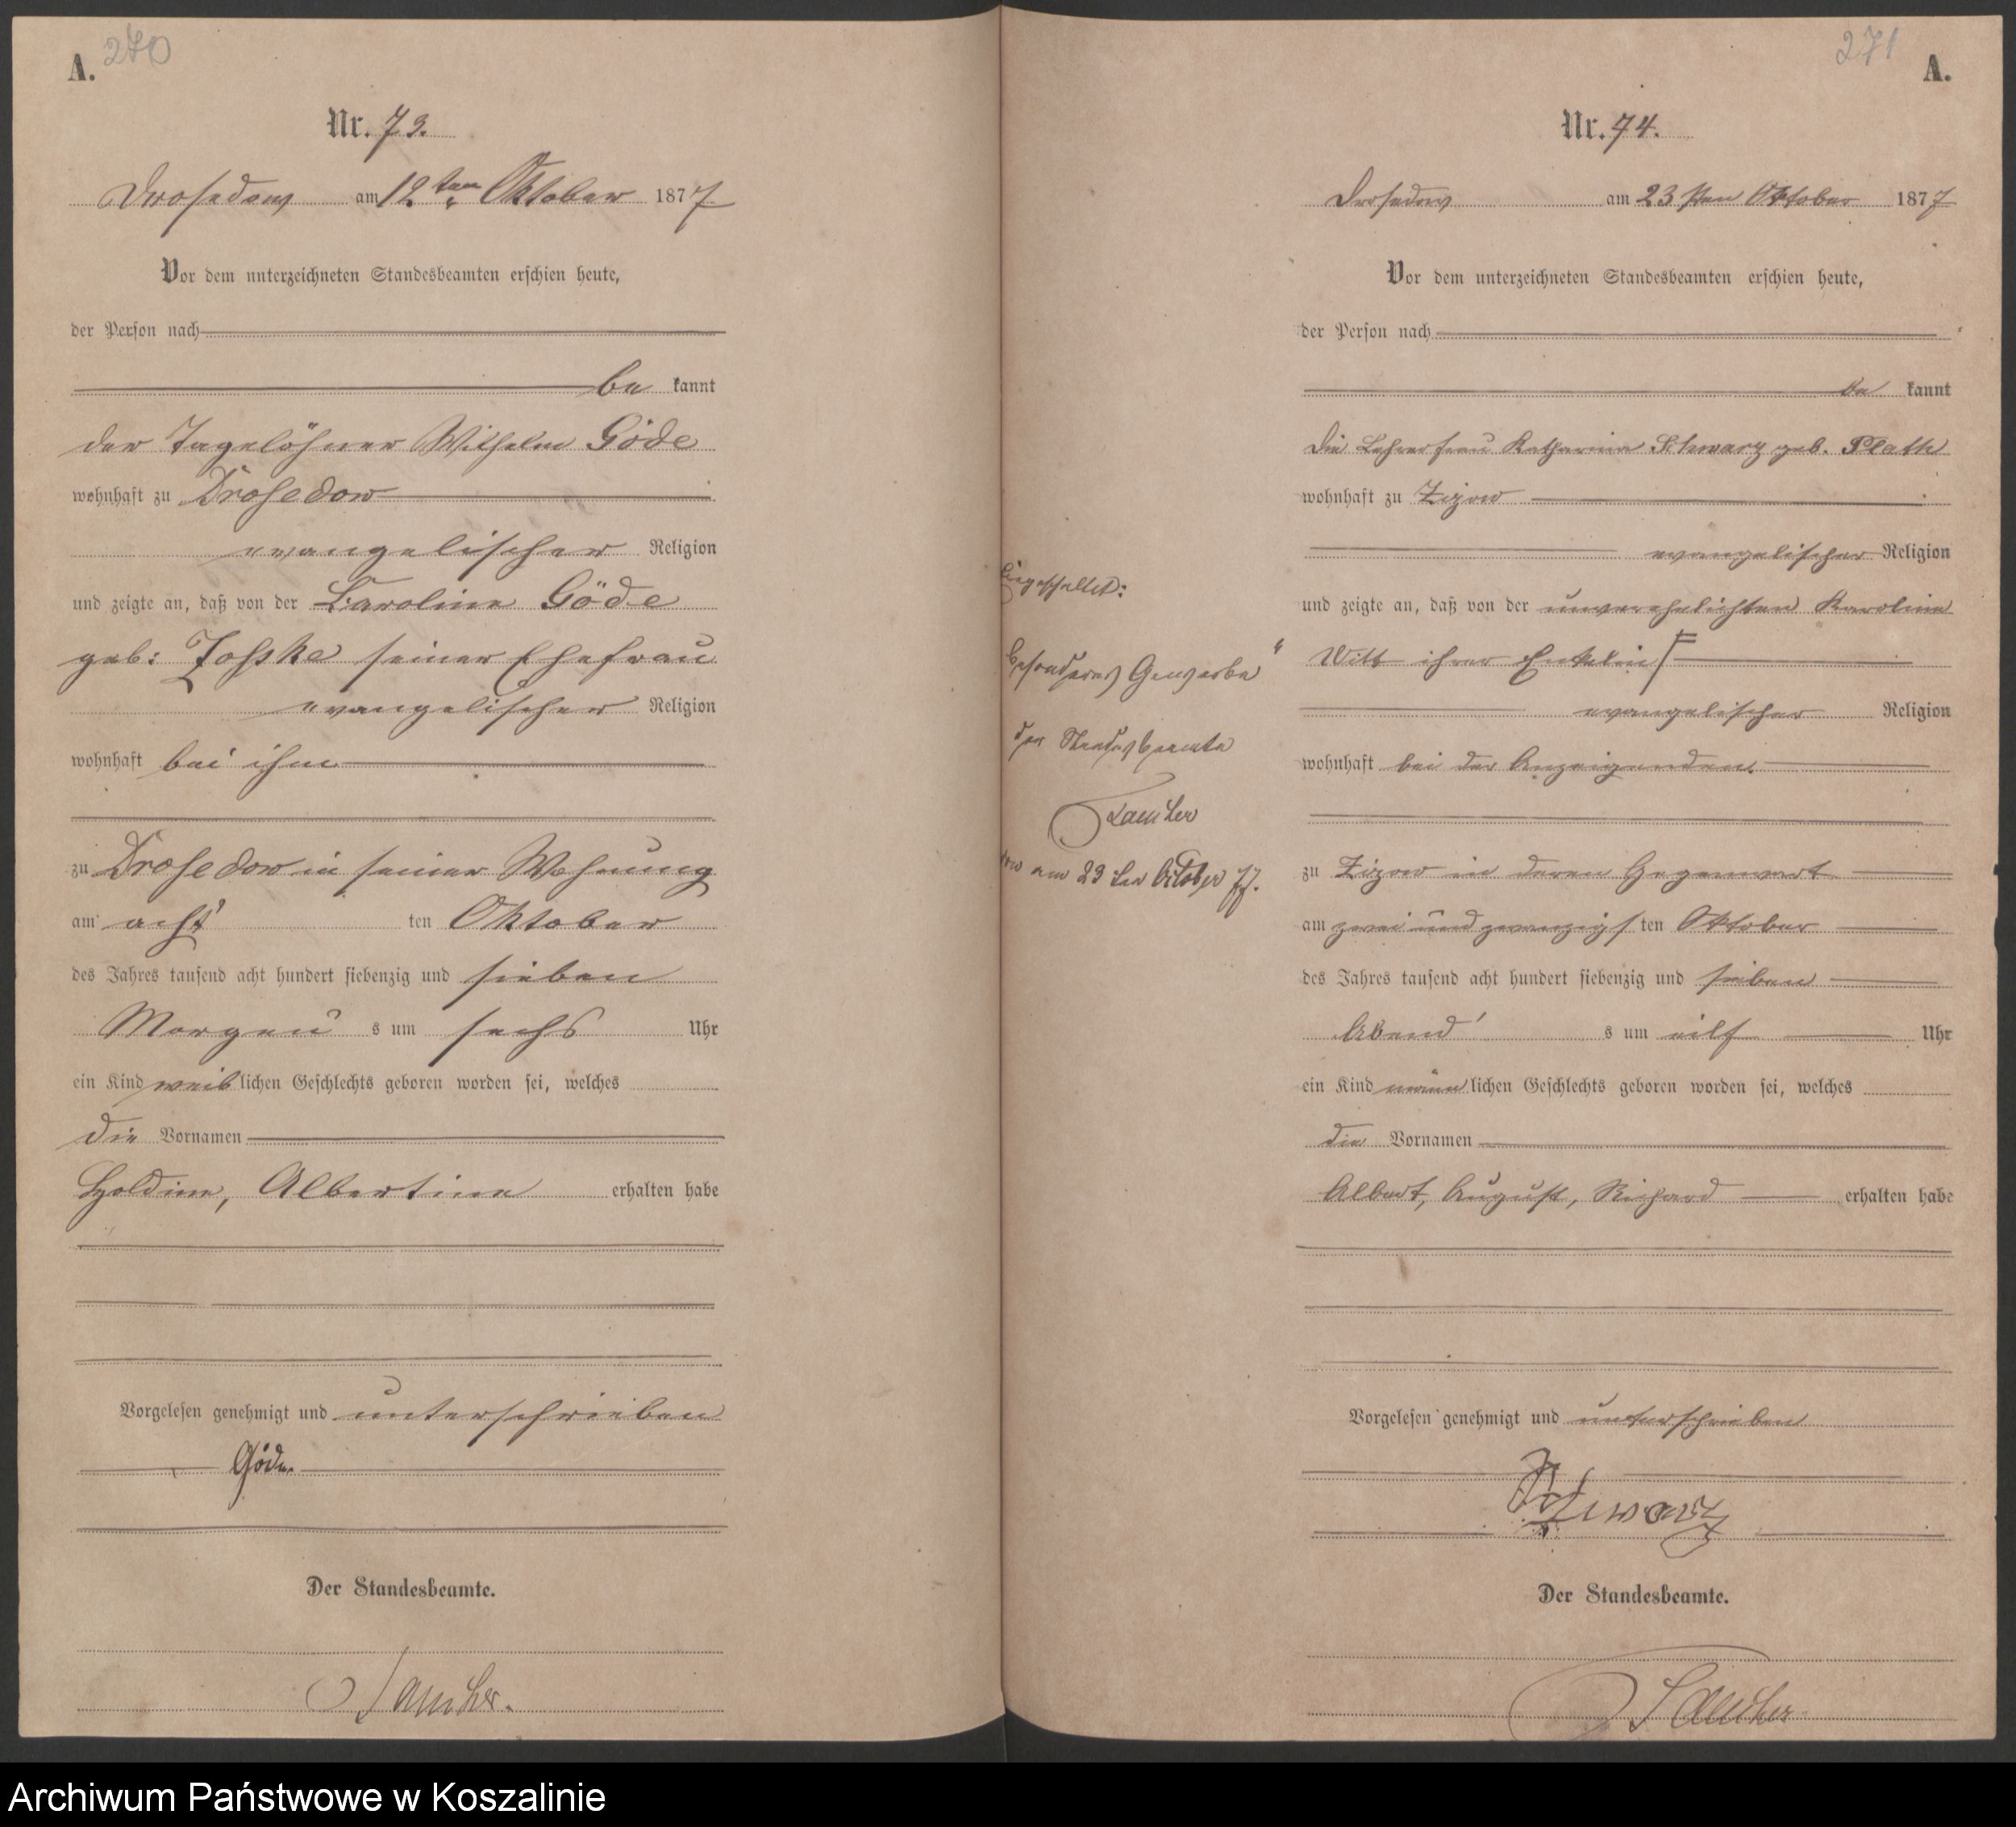 270
A.
Nr. 73.
Drosedow am 12ten Oktober 1877
Vor dem unterzeichneten Standesbeamten erschien heute,
der Person nach
be kannt
der Tagelöhner Wilhelm Göde
wohnhaft zu Drosedow
evangelischer Religion
und zeigte an, daß von der Caroline Göde
geb: seiner Ehefrau
evangelischer Religion
wohnhaft bei ihm
zu Drosedow in seiner Wohnung
am acht ten Oktober
des Jahres tausend acht hundert siebenzig und sieben
Morgen s um sechs Uhr
ein Kind weib lichen Geschlechts geboren worden sei, welches
die Vornamen
Holdine, Albertine erhalten habe
Vorgelesen genehmigt und unterschrieben
Göde.
Der Standesbeamte.
271
A.
Nr. 74.
Drosedow am 23sten Oktober 1877
Vor dem unterzeichneten Standesbeamten erschien heute,
der Person nach
be kannt
die Lehrerfrau Katharina Schwarz geb. Plath
wohnhaft zu Zizow
evangelischer Religion
und zeigte an, daß von der unverehelichten Karoline
Witt ihrer Enkelin
evangelischer Religion
wohnhaft bei der Anzeigenden.
zu Zizow in deren Gegenwart
am zwei und zwanzigs ten Oktober
des Jahres tausend acht hundert siebenzig und sieben
Abend s um eilf Uhr
ein Kind männ lichen Geschlechts geboren worden sei, welches
die Vornamen
Albert, August, Richard erhalten habe
Vorgelesen genehmigt und unterschrieben
Schwarz
Der Standesbeamte.
Eingeschaltet:
Gewerbe"
der Standesbeamte
am 23ten Oktober 77.
Archiwum Państwowe w Koszalinie